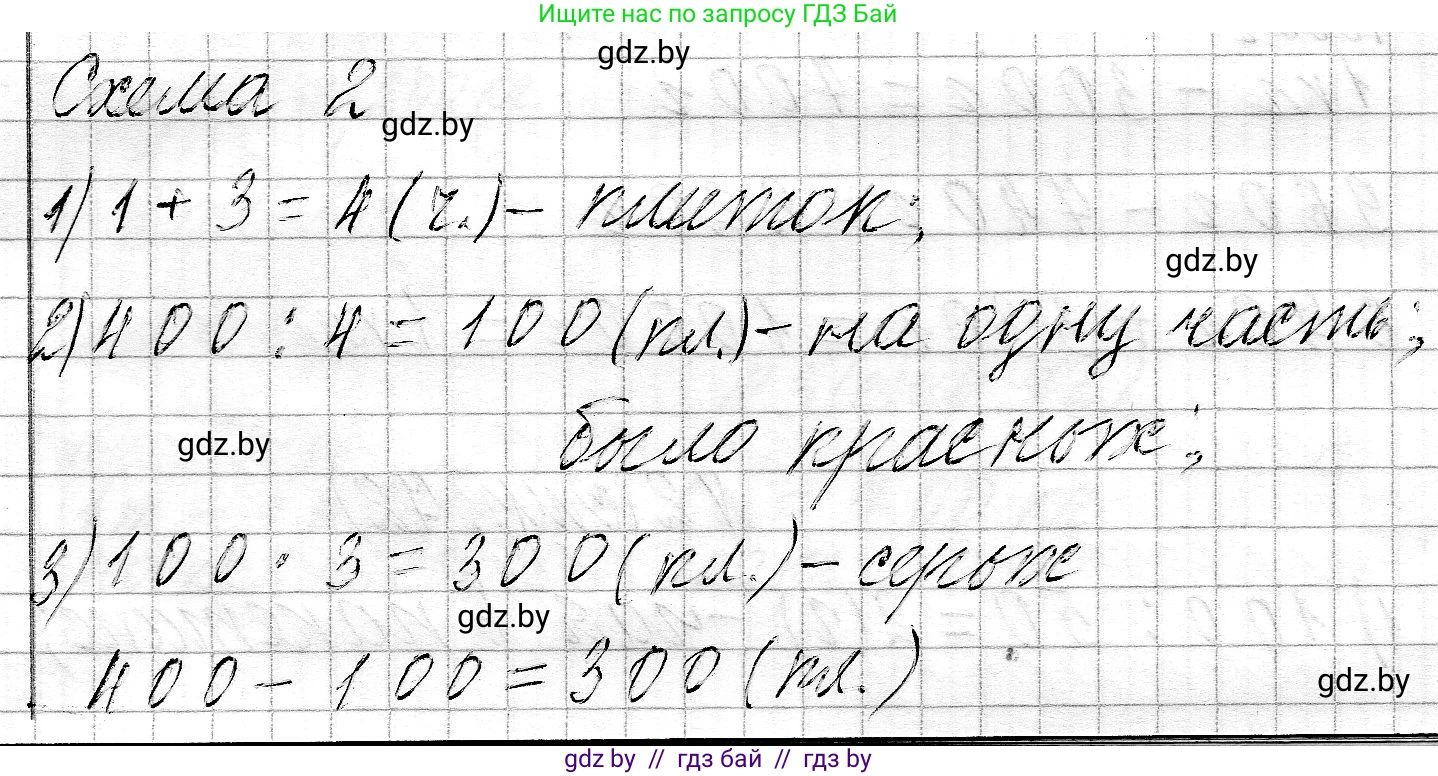 Ищите нас по запросу ГДЗ Бай
gdz.by
Схема 2
gdz.by
1) 1 + 3 = 4 (ч.) - плиток;
gdz.by
2) 400 : 4 = 100 (пл.) - на одну часть;
gdz.by
было красных;
3) 100 · 3 = 300 (пл.) - серых
gdz.by
400 - 100 = 300 (пл.)
gdz.by
gdz.by // гдз бай // гдз by